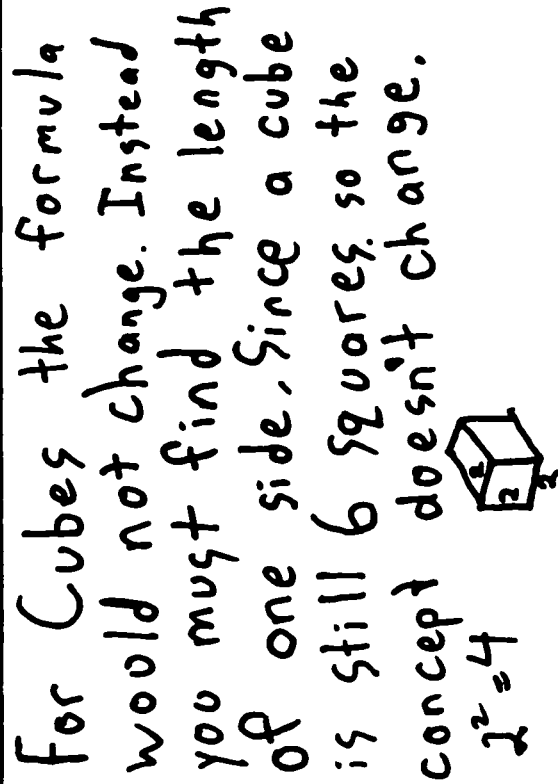 For Cubes the formula
would not change. Instead
you must find the length
of one side. Since a cube
is still 6 squares, so the
concept doesn't change.
2² = 4
2
2
2